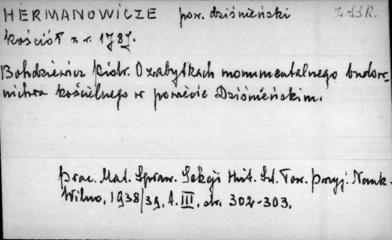 HERMANOWICZE pow. dziśnieński Z.S.S.R.
kościół z r. 1787.
Bohdziewicz Piotr. O zabytkach monumentalnego budow-
nictwa kościelnego w powiecie Dziśnieńskim.
Prac. Mat. Spraw. Sekcji Hist. Szt. Tow. Przyj. Nauk.
Wilno, 1938/39, t. III, str. 302-303.